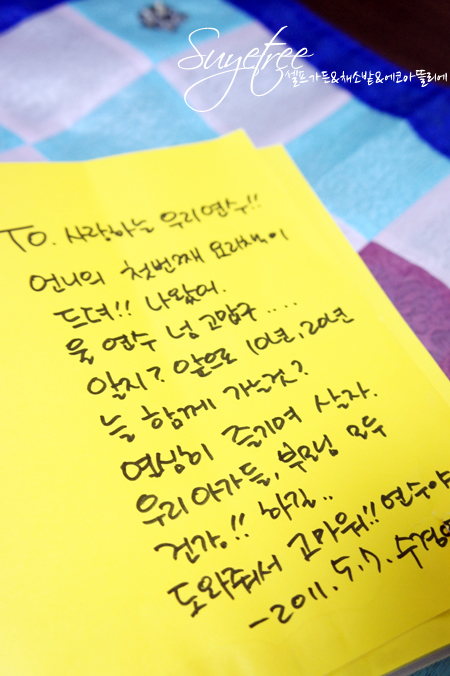 Suyetree
셀프가든&채소밭&에코아뜰리에
TO. 사랑하는 우리연수!!
언니의 첫번째 요리책이
드뎌!! 나왔어.
울 연수 넘 고맙구....
알지? 앞으로 10년, 20년
늘 함께 가는것?
열심히 즐기며 살자.
우리아가들, 부모님 모두
건강!! 하길..
도와줘서 고마워!! 연수야
-2011. 5. 7. 수경